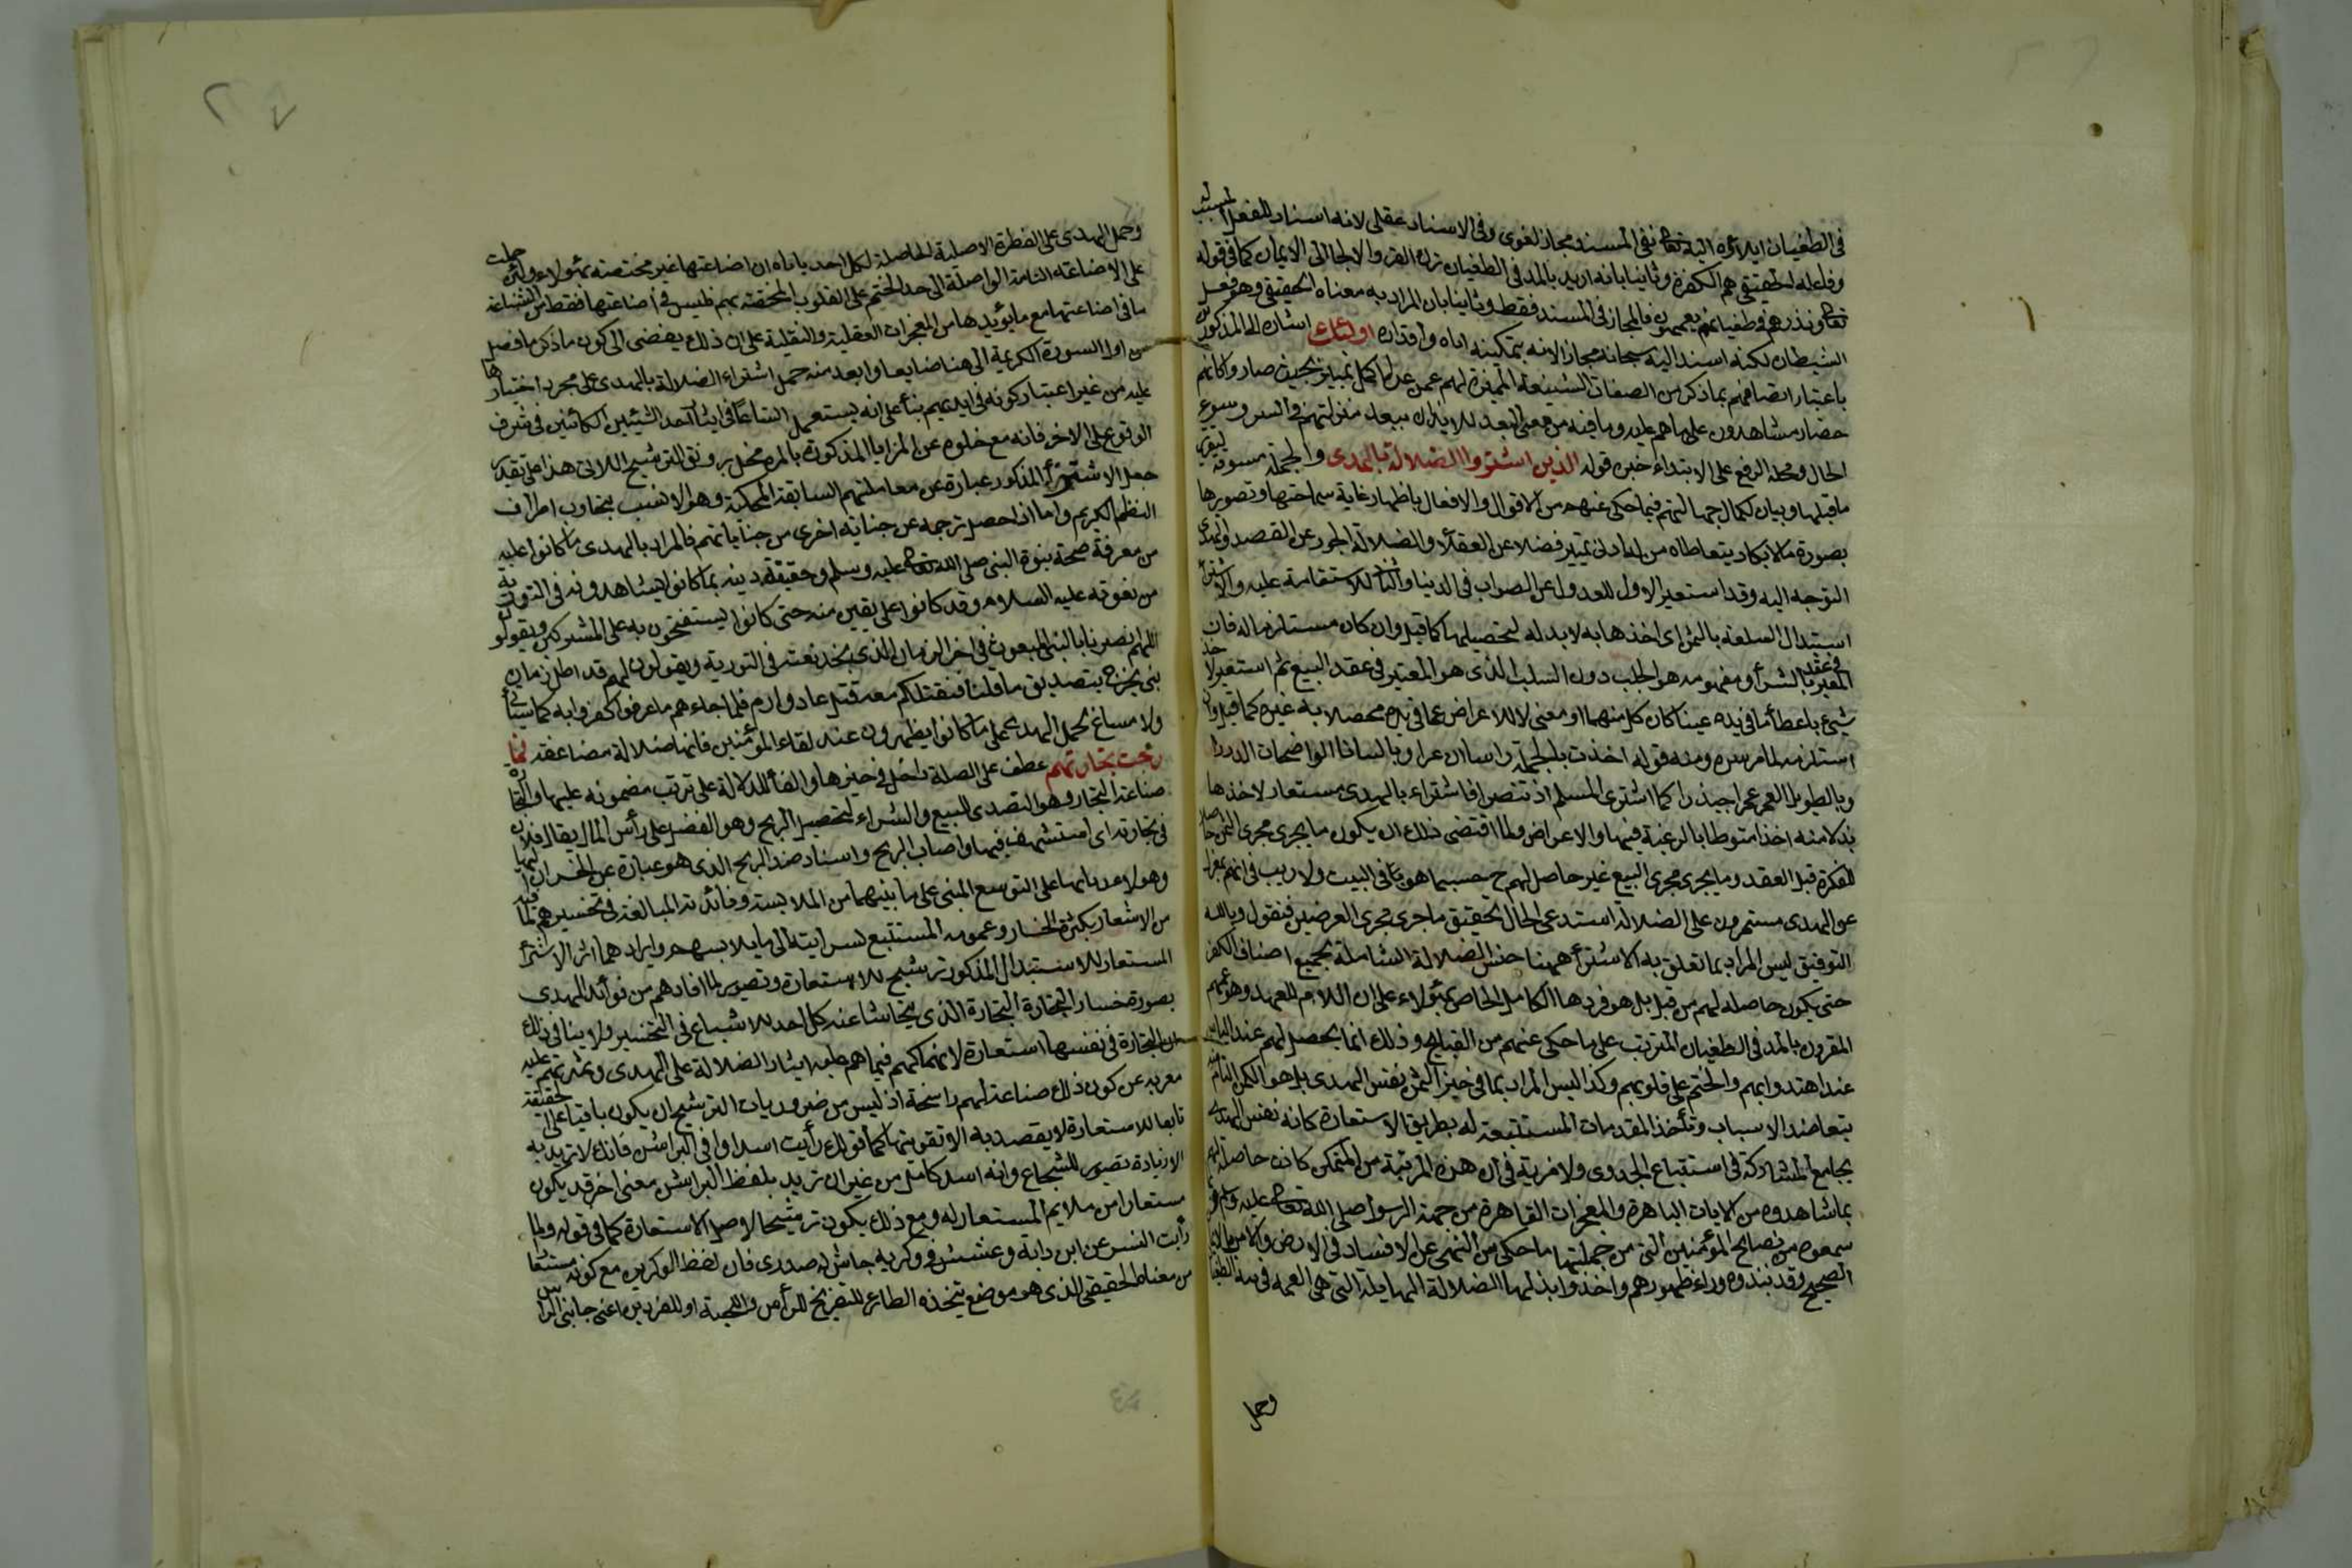 في الطغيان ايلاؤه اليه تعالى نفي المسند مجاز لغوي وفي الاسناد عقلي لانه اسناد للفعل المسبب له
وفاعله الحقيقي هم الكفرة وثانيا بانه اريد بالمد في الطغيان ترك القسر والالجا الى الايمان كما في قوله
تعالى ونذرهم في طغيانهم يعمهون فالمجاز في المسند فقط وثانيا بان المراد به معناه الحقيقي وهو فعل
الشيطان لكنه اسند اليه سبحانه مجازا لانه بتمكينه اياه واقداره اولئك اشارة الى المذكورين
باعتبار اتصافهم بما ذكر من الصفات الشنيعة المميزة لهم عمن عداهم اكمل تمييز بحيث صاروا كانهم
حضار مشاهدون على ما هم عليه وما فيه من معنى البعد للايذان ببعد منزلتهم في الشر وسوء
الحال ومحله الرفع على الابتداء خبره قوله الذين اشتروا الضلالة بالهدى والجملة مسوقة لتقرير
ما قبلها وبيان لكمال جهالتهم فيما حكى عنهم من الاقوال والافعال باظهار غاية سماجتها وتصويرها
بصورة ما لا يكاد يتعاطاه من له ادنى تمييز فضلا عن العقلاء والضلالة الجور عن القصد والهدى
التوجه اليه وقد استعير الاول للعدول عن الصواب في الدين والثاني للاستقامة عليه والاشتراء
استبدال السلعة بالثمن اى اخذها به لا بذله لتحصيلها كما قيل وان كان مستلزما له فان
المعتبر في عقد الشراء ومفهومه هو الجلب دون السلب الذى هو المعتبر في عقد البيع ثم استعير لاخذ
شيء باعطاء ما في يده عينا كان كل منهما او معنى لا للاعراض عما في يده محصلا به غيره كما قيل وان
استلزمه لما مر سره ومنه قوله اخذت بالجملة راسا ازعرا وبالثنايا الواضحات الدردرا
وبالطويل العمر عمرا جيذرا كما اشترى المسلم اذ تنصرا فاشتراء الضلالة بالهدى مستعار لاخذها
بدلا منه اخذا منوطا بالرغبة فيها والاعراض ولما اقتضى ذلك ان يكون ما يجرى مجرى الثمن حاصلا
للكفرة قبل العقد وما يجرى مجرى المبيع غير حاصل لهم ح حسبما هو في البيت ولا ريب في انهم بمعزل
عن الهدى مستمرون على الضلالة استدعى الحال تحقيق ما جرى مجرى العوضين فنقول وبالله
التوفيق ليس المراد بما تعلق به الاشتراء ههنا جنس الضلالة الشاملة لجميع اصناف الكفر
حتى يكون حاصلة لهم من قبل بل هو فردها الكامل الخاص بهؤلاء على ان اللام للعهد وهو عمههم
المقرون بالمد في الطغيان المترتب على ما حكى عنهم من القبايح وذلك انما يحصل لهم عند الياس
عن اهتدوائهم والختم على قلوبهم وكذا ليس المراد بما في حيز الثمن نفس الهدى بل هو التمكن التام منه
بتعاضد الاسباب وتأخذ المقدمات المستتبعة له بطريق الاستعارة كانه نفس الهدى
بجامع المشاركة في استتباع الجدوى ولا مرية في ان هذه المرتبة من التمكن كانت حاصلة لهم
بما شاهدوه من الايات الباهرة والمعجزات القاهرة من جهة الرسول صلى الله تعالى عليه وسلم
سمعوه من نصايح المؤمنين التي من جملتها ما حكى من النهى عن الافساد في الارض والامر بالايمان
الصحيح وقد نبذوه وراء ظهورهم واخذوا بدلها الضلالة الهايلة التي هي العمه في تيه الطغيان
وحمل
وحمل الهدى على الفطرة الاصلية الحاصلة لكل احد ياباه ان اضاعتها غير مختصة بهؤلاء ولئن حملت
على الاضاعة التامة الواصلة الى حد الختم على القلوب المختصة بهم فليس في اضاعتها فقط من الشناعة
ما في اضاعتها مع ما يؤيدها من المعجزات العقلية والنقلية على ان ذلك يفضى الى كون ما ذكر ما فصل
من اول السورة الكريمة الى هنا ضايعا وابعد منه حمل اشتراء الضلالة بالهدى على مجرد اختيارها
عليه من غير اعتبار كونه في ايديهم بناء على انه يستعمل اتساعا في ايثار احد الشيئين الكائنين في شرف
الوقوع على الاخر فانه مع خلوه عن المزايا المذكورة بالمرة مخل برونق الترشيح اللاتي هذا على تقدير
جعل الاشتراء المذكور عبارة عن معاملتهم السابقة المحكية وهو الانسب بتجاوب اطراف
النظم الكريم واما اذا جعل ترجمة عن جناية اخرى من جناياتهم فالمراد بالهدى ما كانوا عليه
من معرفة صحة نبوة النبي صلى الله تعالى عليه وسلم وحقيقة دينه بما كانوا يشاهدونه في التورية
من نعوته عليه السلام وقد كانوا على يقين منه حتى كانوا يستفتحون به على المشركين ويقولون
اللهم انصرنا بالنبي المبعوث في اخر الزمان الذى نجد نعته في التورية ويقولون لهم قد اظل زمان
نبي يخرج بتصديق ما قلنا فنقتلكم معه قتل عاد وارم فلما جاءهم ما عرفوا كفروا به كما سيأتي
ولا مساغ لحمل الهدى على ما كانوا يظهرونه عند لقاء المؤمنين فانها ضلالة مضاعفة فما
ربحت تجارتهم عطف على الصلة داخل في حيزها والفاء للدلالة على ترتب مضمونه عليها والتجارة
صناعة التجار وهو التصدى للبيع والشراء لتحصيل الربح وهو الفضل على رأس المال يقال ربح فلان
في تجارته اى استشف فيها واصاب الربح واسناد ضد الربح الذى هو عبارة عن الخسران اليها
وهو لاربابها على التوسع المبني على ما بينهما من الملابسة وفائدته المبالغة في تخسيرهم لما فيه
من الاشعار بكثرة الخسار وعمومه المستتبع لسرايته الى ما يلابسهم وايرادهما اثر الاشتراء
المستعار للاستبدال المذكور ترشيح للاستعارة وتصوير لما فاتهم من فوائد الهدى
بصورة خسار التجارة الذى يتحاشا عنه كل احد للاشباع في التخسير ولا ينافي ذلك
ان التجارة في نفسها استعارة لانهماكهم فيما هم عليه ايثار الضلالة على الهدى وتمرنهم عليه
معربه عن كون ذلك صناعة لهم راسخة اذ ليس من ضروريات الترشيح ان يكون باقيا على الحقيقة
تابعا للاستعارة لا يقصد به الا تقويتها كما في قولك رأيت اسدا وافى البراثن فانك لا تريد به
الا زيادة تصوير للشجاع وانه اسد كامل من غير ان تريد بلفظ البراثن معنى اخر قد يكون
مستعارا من ملايم المستعار له ومع ذلك يكون ترشيحا لاصل الاستعارة كما في قوله ولما
رأيت النسر عن ابن داية وعشش في وكريه جاش له صدرى فان لفظ الوكرين مع كونه مستعارا
من معناه الحقيقي الذى هو موضع يتخذه الطائر للتفريخ للرأس واللحية او للفودين اعني جانبي الرأس